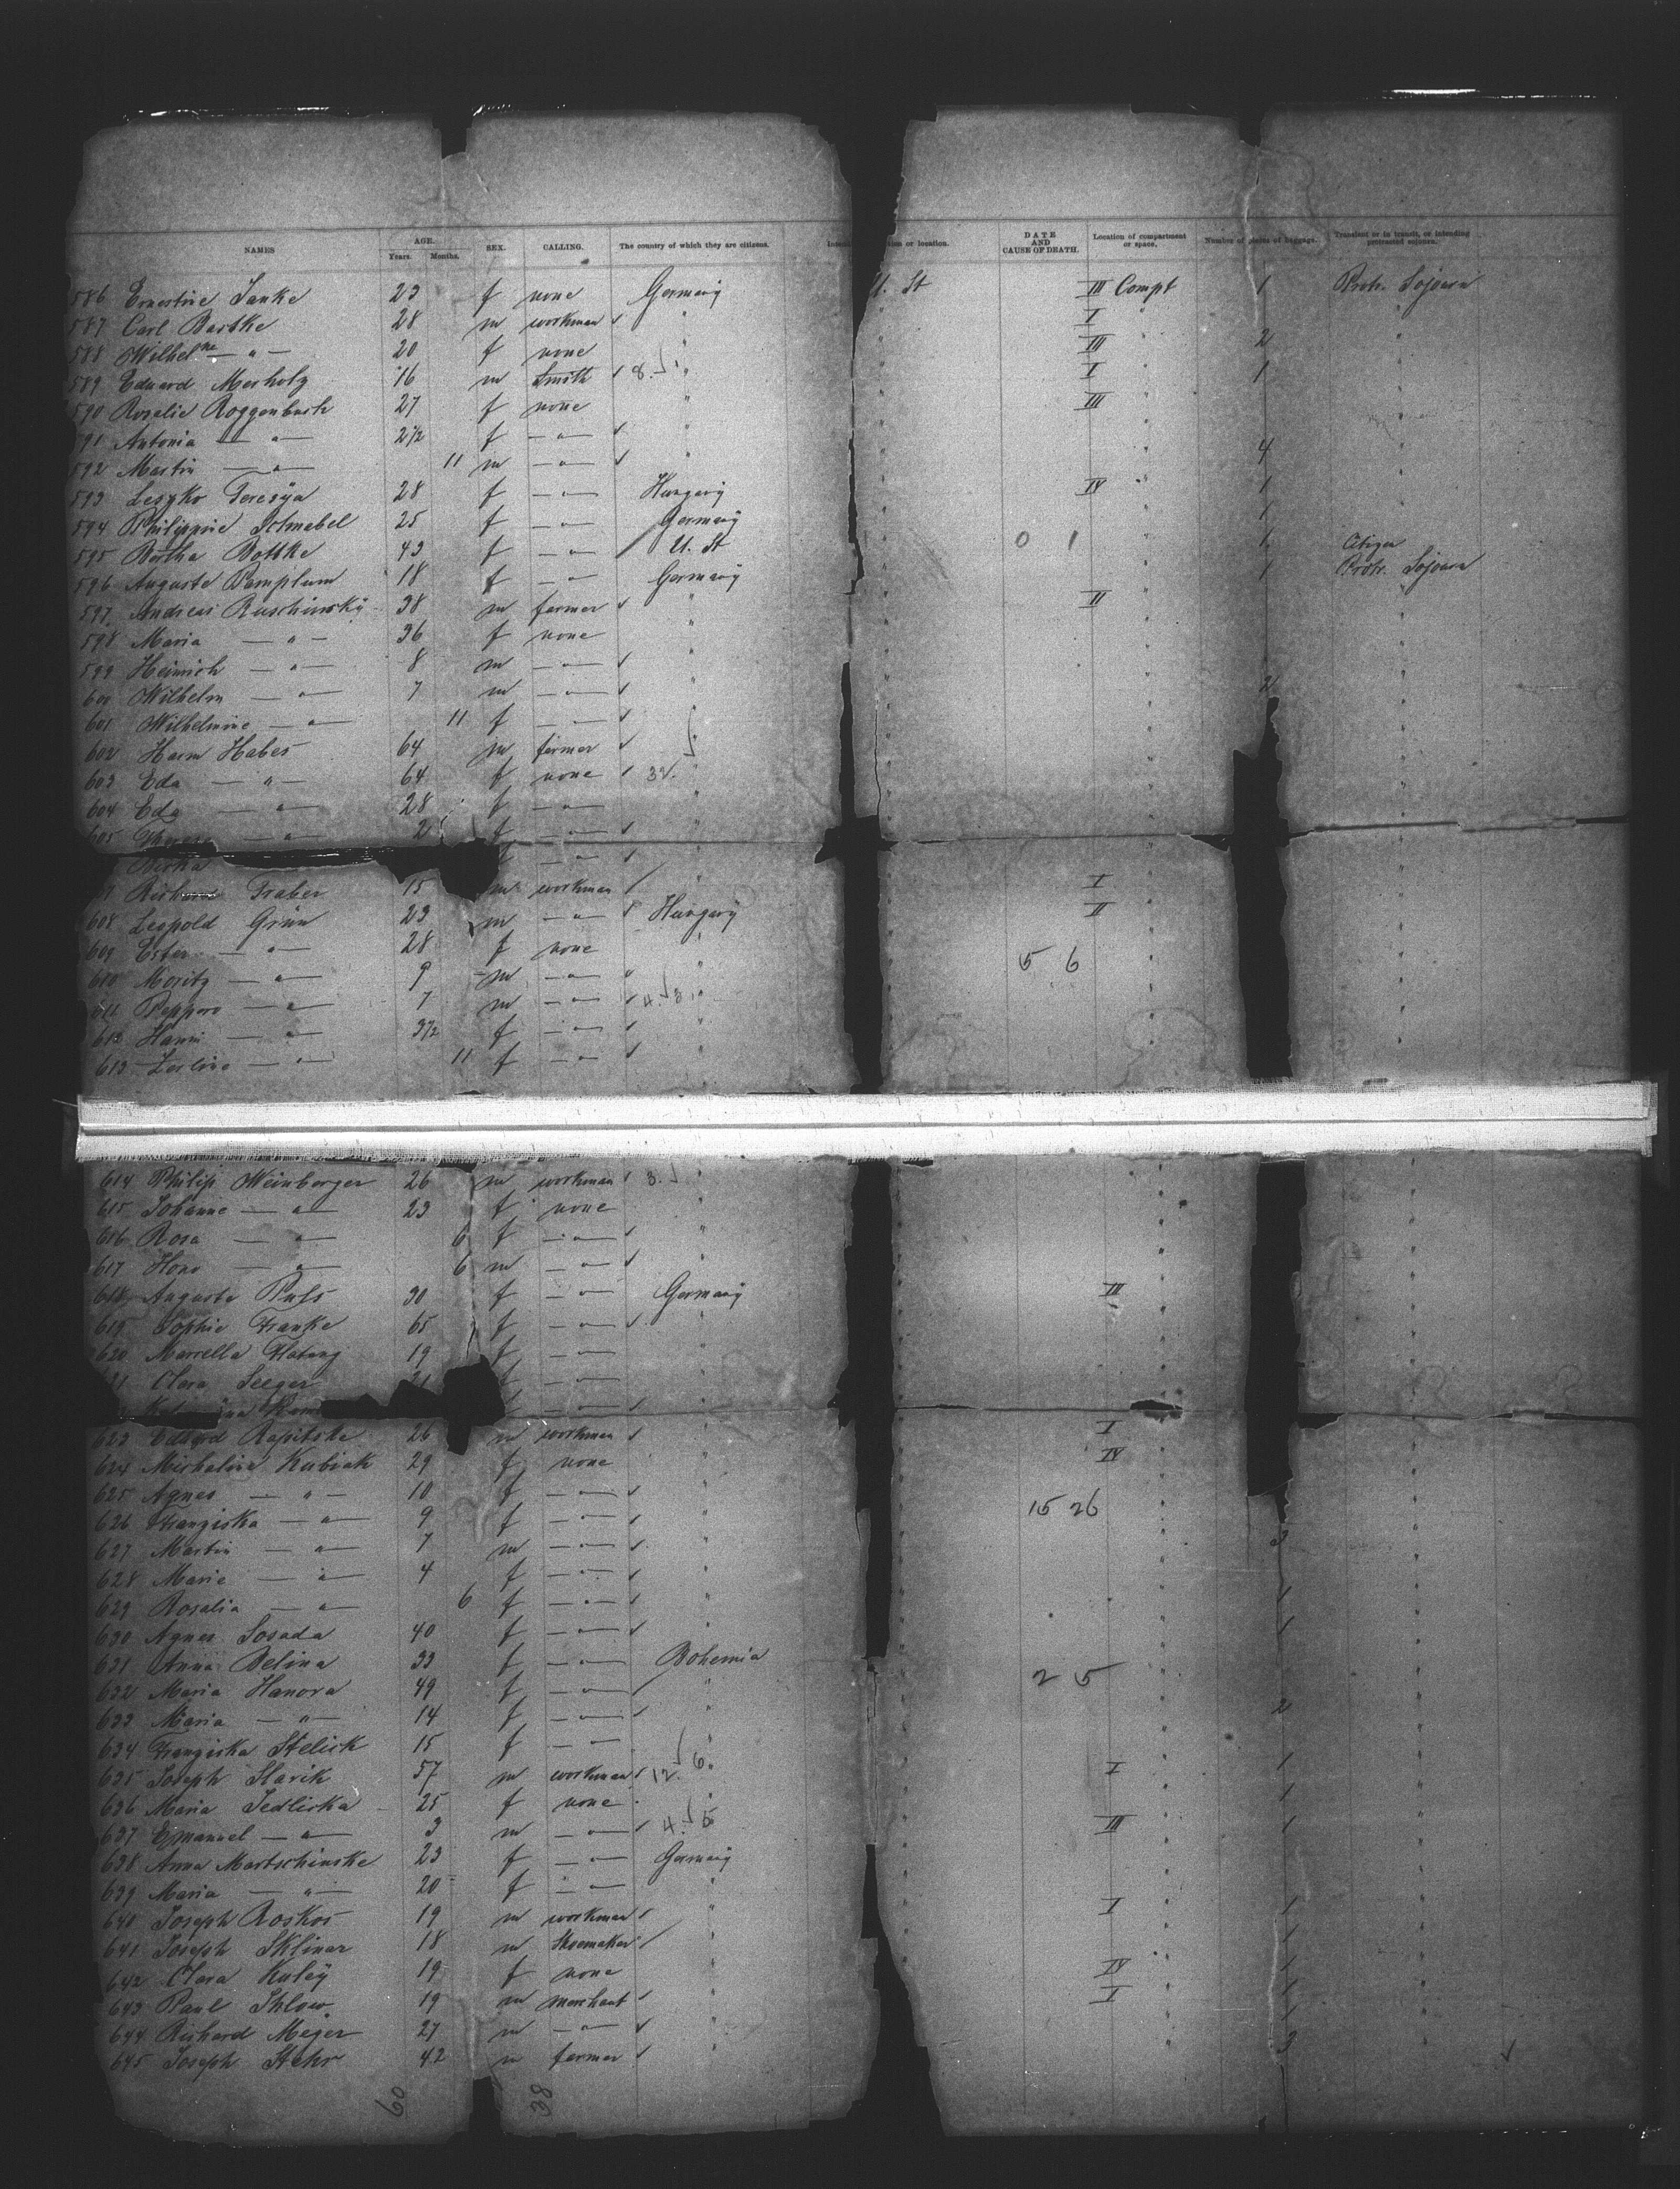 NAMES AGE. Years. Months. SEX. CALLING. The country of which they are citizens. DATE AND CAUSE OF DEATH. Location of compartment or space. Number of pieces of baggage. Transient or in transit, or intending protracted sojourn.
586 Ernestine Janke 23 f none Germany U. St III Compt 1 Protr. Sojourn
587 Carl Bartke 28 m workman " I "
588 Wilhelne — " — 20 f none " III " 2 "
589 Eduard Merholz 16 m Smith 8. " I " 1 "
590 Rosalie Roggenbuck 27 f none " III "
591 Antonia — " — 2 1/2 f — " — "
592 Martin — " — 11 m — " — " 4
593 Leszko Teresya 28 f — " — Hungary IV " 1
594 Philippine Schnabel 25 f — " — Germany 1
595 Bertha Bottke 43 f — " — U. St 0 1 1 Citizen
596 Auguste Pamplum 18 f — " — Germany 1 Protr. Sojourn
597 Andreas Ruschinsky 38 m farmer " II
598 Maria — " — 36 f none "
599 Heinrich — " — 8 m — " — "
600 Wilhelm — " — 7 m — " — " 2
601 Wilhelmine — " — 11 f — " — "
602 Harm Habes 64 m farmer "
603 Eda — " — 64 f none 32. "
604 Eda — " — 28 f — " — "
605 — " — 2 f — " — "
f — " —
Richard Graber 15 m workman " I
608 Leopold Grün 23 m — " — Hungary II
609 Ester — " — 28 f none " 5 6
610 Moritz — " — 9 m — " — "
611 — " — 7 m — " — 4. 3. "
612 Hanni — " — 3 1/2 f — " — "
613 — " — 11 f — " — "
614 Philip Weinberger 26 m workman 3. "
615 Johanne — " — 23 f none "
616 Rosa — " — 6 f — " — "
617 — " — 6 m — " — "
618 Auguste Puls 30 f — " — Germany III
619 Sophie Franke 65 f — " — "
620 Marrella 19 f — " — "
Clara Seeger 21 f — " — "
f — " — "
623 Eduard Rapitske 26 m workman " I
624 Michalina Kubiak 29 f none " IV
625 Agnes — " — 10 f — " — " 15 26
626 Franziska — " — 9 f — " — "
627 Martin — " — 7 m — " — " 3
628 Marie — " — 4 f — " — "
629 Rosalia — " — 6 f — " — " 1
630 Agnes Sosada 40 f — " — " 1
631 Anna Belina 33 f — " — Bohemia 2 5
632 Maria Hanora 49 f — " — "
633 Maria — " — 14 f — " — " 2
634 Franziska Stelick 15 f — " — "
635 Joseph Slavik 57 m workman 12. 6 " I 1
636 Maria Jedlicka 25 f none " 1
637 Emanuel — " — 3 m — " — 4. 5 III 1
638 Anna Martschinske 23 f — " — Germany
639 Maria — " — 20 f — " — "
640 Joseph Roskos 19 m workman " I 1
641 Joseph Sklinar 18 m Shoemaker " 1
642 Clara Kuley 19 f none " IV 1
643 Paul Sklow 19 m merchant " I 1
644 Richard Mejer 27 m — " — " 1
645 Joseph Stehr 42 m farmer " 3
60 38